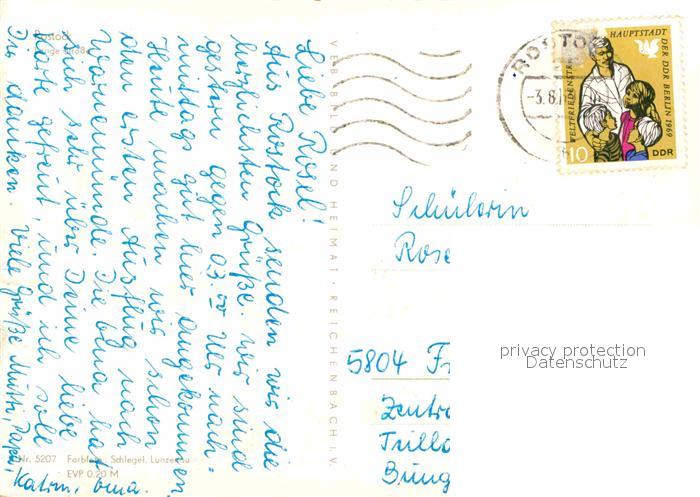 Rostock
Lange Straße
Liebe Rosel!
Aus Rostock senden wir die
herzlichsten Grüße. Wir sind
gestern gegen 03.00 Uhr nach-
mittags gut hier angekommen.
Heute machen wir schon
den ersten Ausflug nach
Warnemünde. Die Oma hat
sich sehr über Deine liebe
Karte gefreut, und ich soll
Dir danken. Viele Grüße Mutti, Papa,
Katrin, Oma.
Nr. 5207 Farbfoto: Schlegel, Lunzenau
EVP 0,20 M
VERLAG BILD UND HEIMAT · REICHENBACH I. V.
ROSTO
-3.8.
WELTFRIEDENSTR
HAUPTSTADT DER DDR BERLIN 1969
10
DDR
Schülerin
Rose
5804 Fr
Zentra
Trillo
Bung
privacy protection
Datenschutz